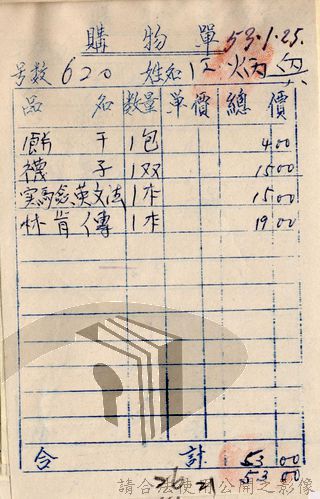 購物單 53.1.25.
号数 620 姓名 江炳興
品名 数量 单價 總價
餅干 1包 4 00
襪子 1双 15 00
実驗英文法 1本 15 00
林肯傳 1本 19 00
合計 53 00
53 00
請合法使用公開之影像